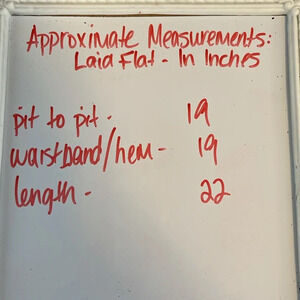 Approximate Measurements:
Laid Flat - In Inches
pit to pit - 19
waistband/hem - 19
length - 22